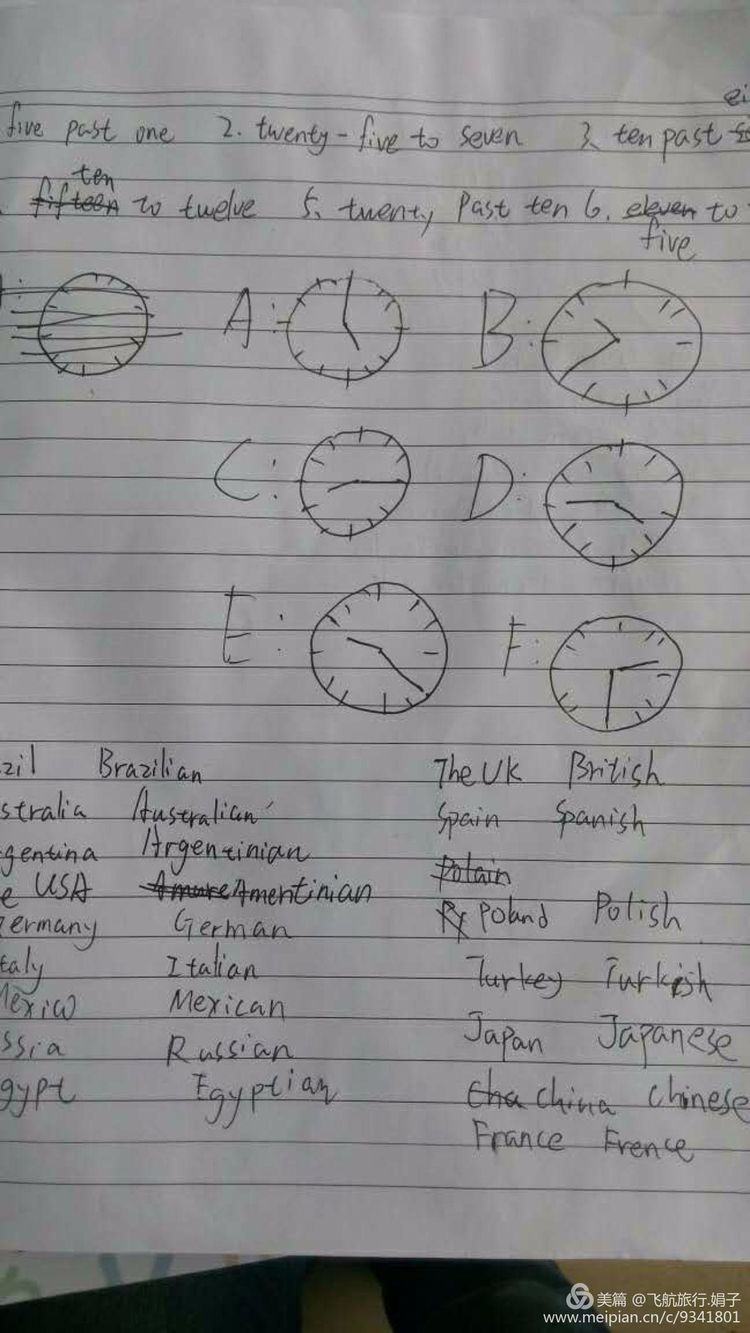 ei
five past one 2. twenty-five to seven 3. ten past
ten
fifteen to twelve 5. twenty past ten 6. eleven to
five
A: B:
C: D:
E: F:
zil Brazilian The UK British
stralia Australian Spain Spanish
gentina Argentinian Potain
e USA Amare Amentinian
ermany German Poland Polish
taly Italian Turkey Turkish
Mexico Mexican
ssia Russian Japan Japanese
gypt Egyptian Cha China Chinese
France Frence
美篇 @飞航旅行.娟子
www.meipian.cn/c/9341801